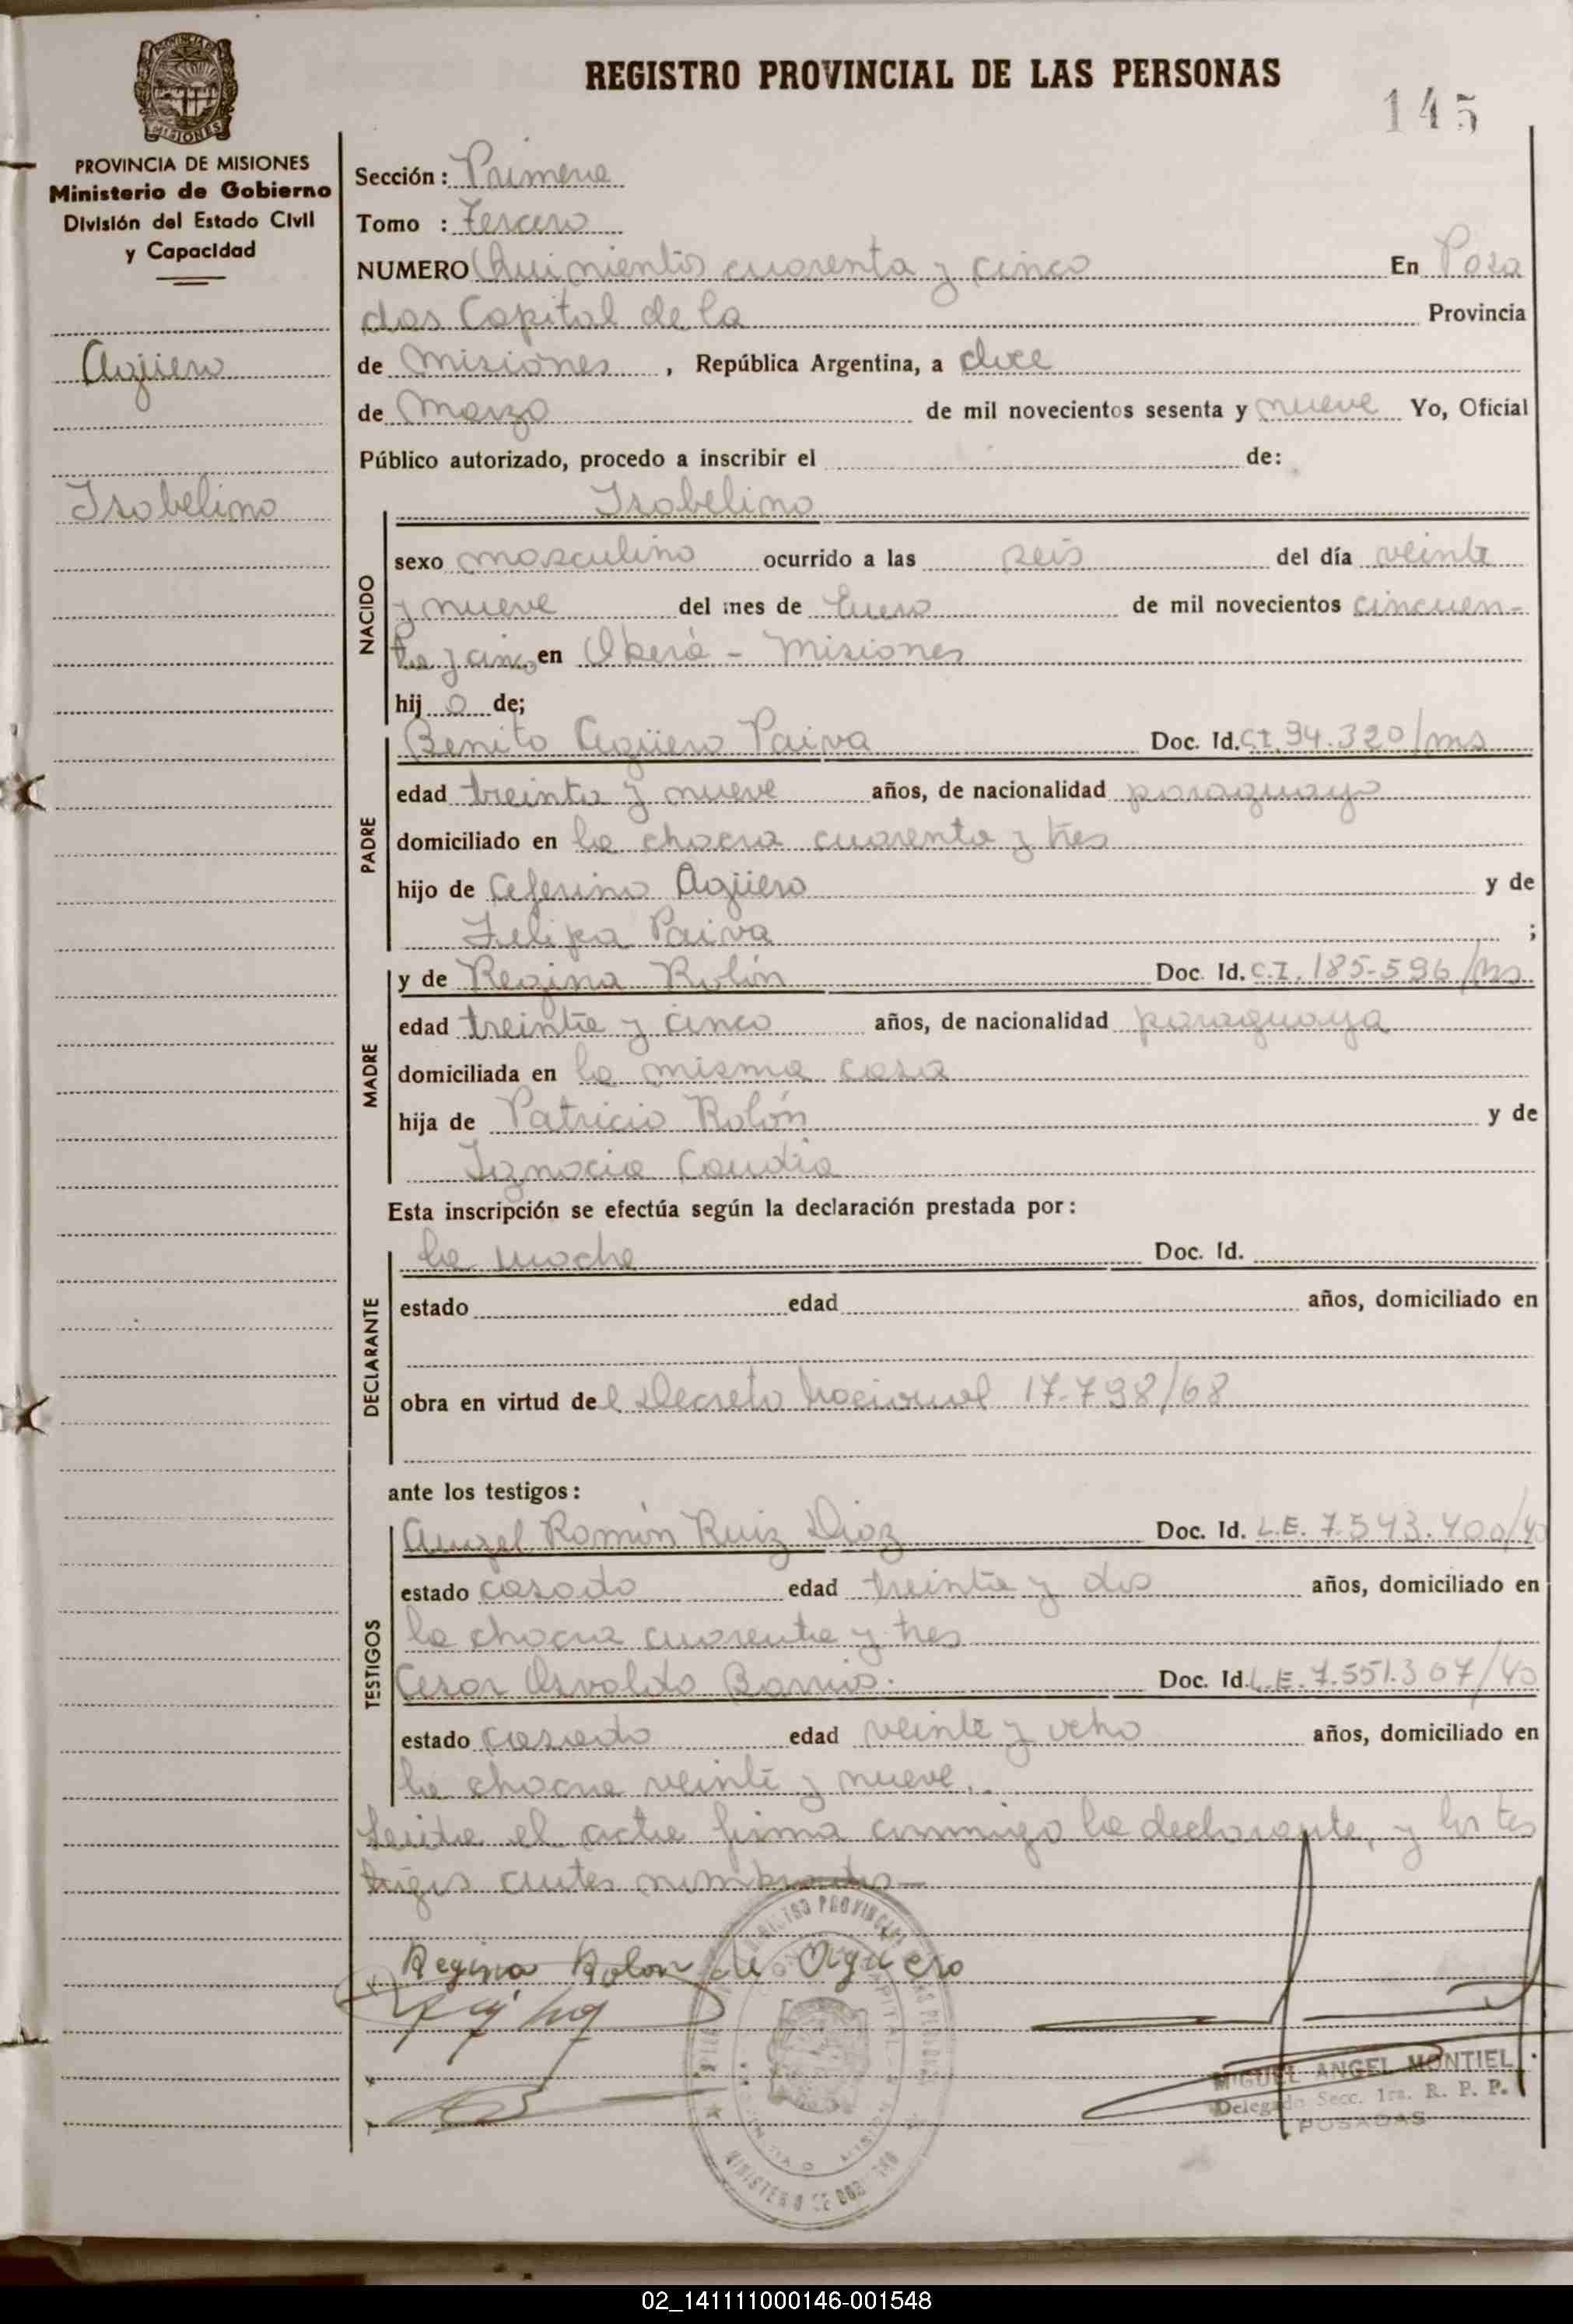 REGISTRO PROVINCIAL DE LAS PERSONAS
145
PROVINCIA DE MISIONES
PROVINCIA DE MISIONES
Ministerio de Gobierno
División del Estado Civil
y Capacidad
Agüero
Isabelino
Sección: Primera
Tomo : Tercero
NUMERO Quinientos cuarenta y cinco En Posa
das Capital de la Provincia
de Misiones, República Argentina, a doce
de Marzo de mil novecientos sesenta y nueve Yo, Oficial
Público autorizado, procedo a inscribir el de:
Isabelino
NACIDO
sexo masculino ocurrido a las seis del día veinte
y nueve del mes de Enero de mil novecientos cincuen-
ta y cinco en Oberá - Misiones
hij o de;
PADRE
Benito Agüero Paiva Doc. Id. C.I. 94.320/ms
edad treinta y nueve años, de nacionalidad paraguayo
domiciliado en la chacra cuarenta y tres
hijo de Ceferino Agüero y de
Felipa Paiva ;
MADRE
y de Regina Rolón Doc. Id. C.I. 185-596/ms
edad treinta y cinco años, de nacionalidad paraguaya
domiciliada en la misma casa
hija de Patricio Rolón y de
Ignacia Candia
Esta inscripción se efectúa según la declaración prestada por:
DECLARANTE
la madre Doc. Id.
estado edad años, domiciliado en
obra en virtud del Decreto Nacional 17-798/68
ante los testigos:
TESTIGOS
Angel Román Ruiz Diaz Doc. Id. L.E. 7.543.400/40
estado casado edad treinta y dos años, domiciliado en
la chacra cuarenta y tres
Cesar Osvaldo Barrios. Doc. Id. L.E. 7.551.307/40
estado casado edad veinte y ocho años, domiciliado en
la chacra veinte y nueve.
Leida el acta firma conmigo la declarante, y los tes
tigos antes nombrados—
Regina Rolon de Agüero
REGISTRO PROVINCIAL DE LAS PERSONAS
MINISTERIO DE GOBIERNO
MIGUEL ANGEL MONTIEL
Delegado Secc. 1ra. R. P. P.
POSADAS
02_141111000146-001548